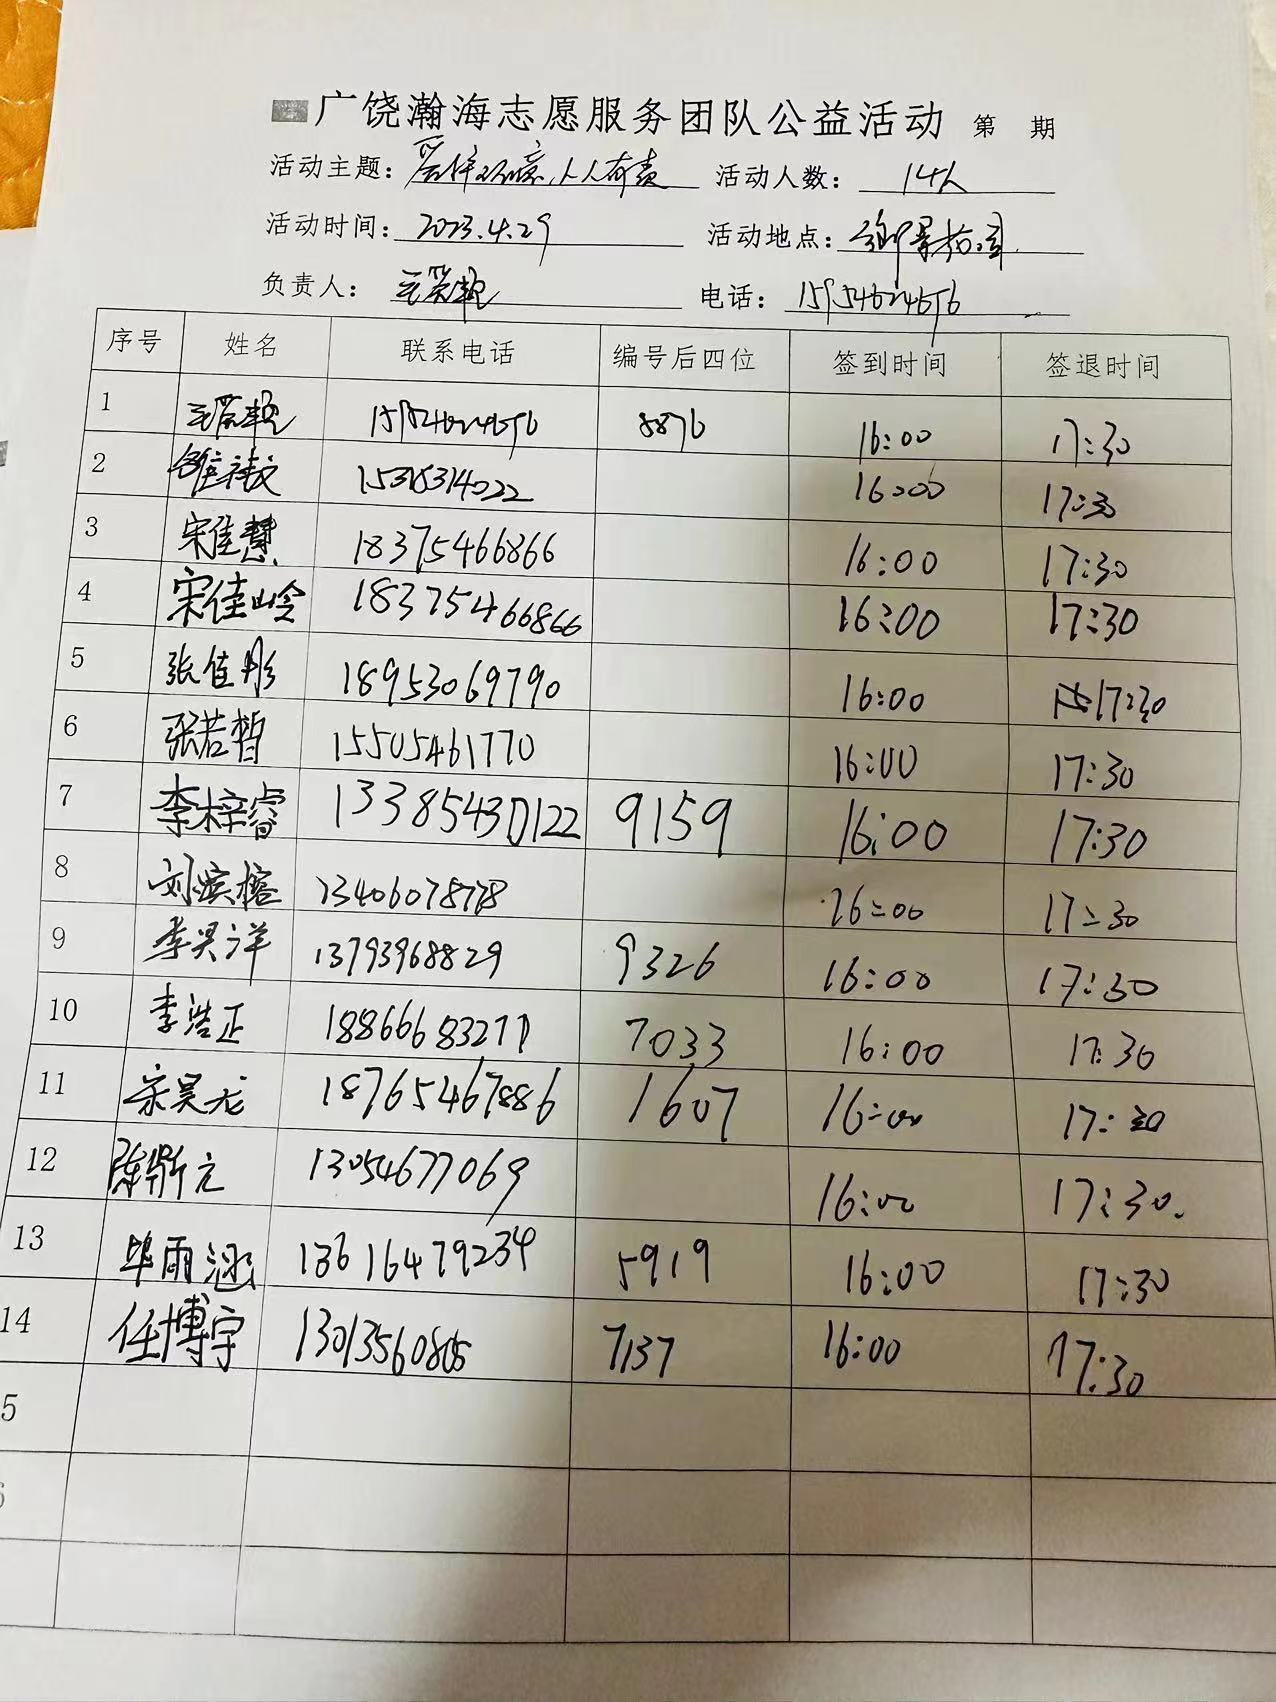 广饶瀚海志愿服务团队公益活动 第 期
活动主题：爱护环境,人人有责 活动人数： 14人
活动时间：2023.4.29 活动地点：
负责人： 电话：15954624656
序号 姓名 联系电话 编号后四位 签到时间 签退时间
1 15954624656 8876 16:00 17:30
2 16:00 17:30
3 宋佳慧 18375466866 16:00 17:30
4 宋佳岭 18375466866 16:00 17:30
5 张佳彤 18953069790 16:00 17:30
6 张若皙 15505461770 16:00 17:30
7 李梓睿 13385430122 9159 16:00 17:30
8 刘滨榕 13406078778 16:00 17:30
9 李昊洋 13793968829 9326 16:00 17:30
10 李浩正 18866683271 7033 16:00 17:30
11 宋昊龙 18765467886 1607 16:00 17:30
12 13054677069 16:00 17:30.
13 毕雨涵 13616479234 5919 16:00 17:30
14 任博宇 13013560805 7137 16:00 17:30
5
6